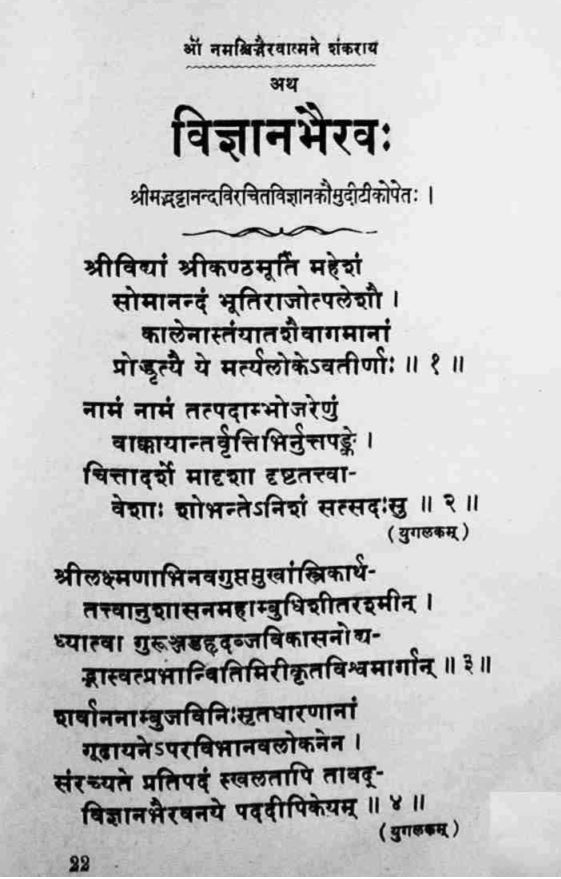 ओं नमश्चिद्भैरवात्मने शंकराय
अथ
विज्ञानभैरवः
श्रीमद्भट्टानन्दविरचितविज्ञानकौमुदीटीकोपेतः ।
श्रीविद्यां श्रीकण्ठमूर्तिं महेशं
सोमानन्दं भूतिराजोत्पलेशौ ।
कालेनास्तंयातशैवागमानां
प्रोद्धृत्यै ये मर्त्यलोकेऽवतीर्णाः ॥ १ ॥
नामं नामं तत्पदाम्भोजरेणुं
वाक्कायान्तर्वृत्तिभिर्नुत्तपङ्के ।
चित्तादर्शे मादृशा दृष्टतत्त्वा-
वेशाः शोभन्तेऽनिशं सत्सदःसु ॥ २ ॥
(युगलकम्)
श्रीलक्ष्मणाभिनवगुप्तमुखांस्त्रिकार्थ-
तत्त्वानुशासनमहाम्बुधिशीतरश्मीन् ।
ध्यात्वा गुरूञ्जडहृदब्जविकासनोद्य-
द्भास्वत्प्रभान्वितिमिरीकृतविश्वमार्गान् ॥ ३॥
शर्वाननाम्बुजविनिःसृतधारणानां
गूढायनेऽपरविभानवलोकनेन ।
संरच्यते प्रतिपदं स्खलतापि तावद्-
विज्ञानभैरवनये पददीपिकेयम् ॥ ४ ॥
(युगलकम्)
22